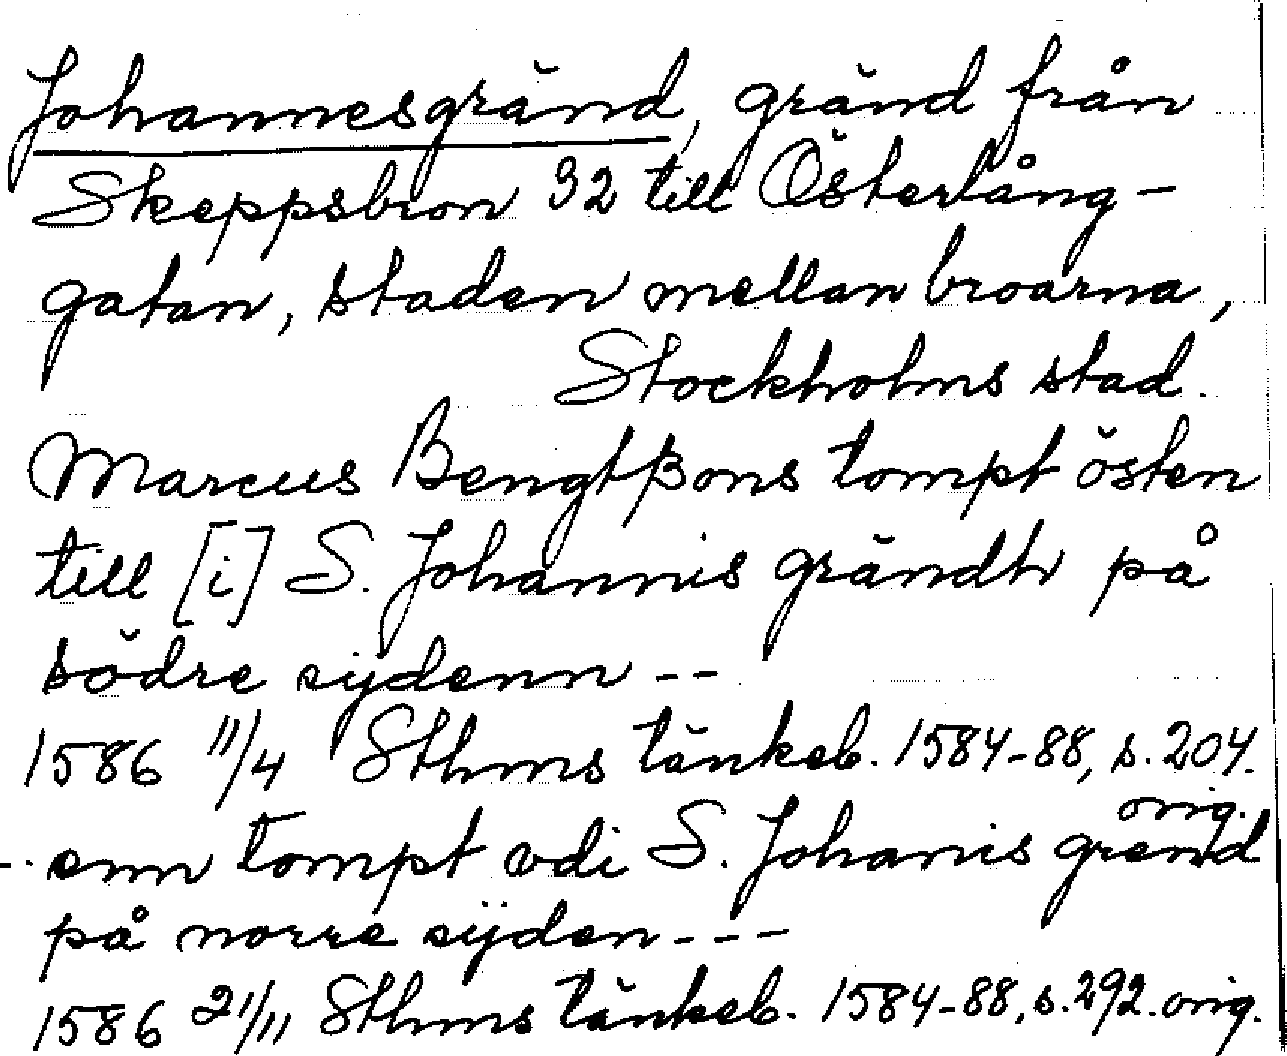 Johannesgränd, gränd från
Skeppsbron 32 till Österlång-
gatan, staden mellan broarna,
Stockholms stad.
Marcus Bengtßons tompt östen
till [i] S. Johannis grändh på
södre sijdenn --
1586 11/4 Sthms tänkeb. 1584-88, s. 204.
orig.
-. enn tompt vdi S. Johanis grend
på norre sÿden ---
1586 21/11 Sthms tänkeb. 1584-88, s. 292. orig.